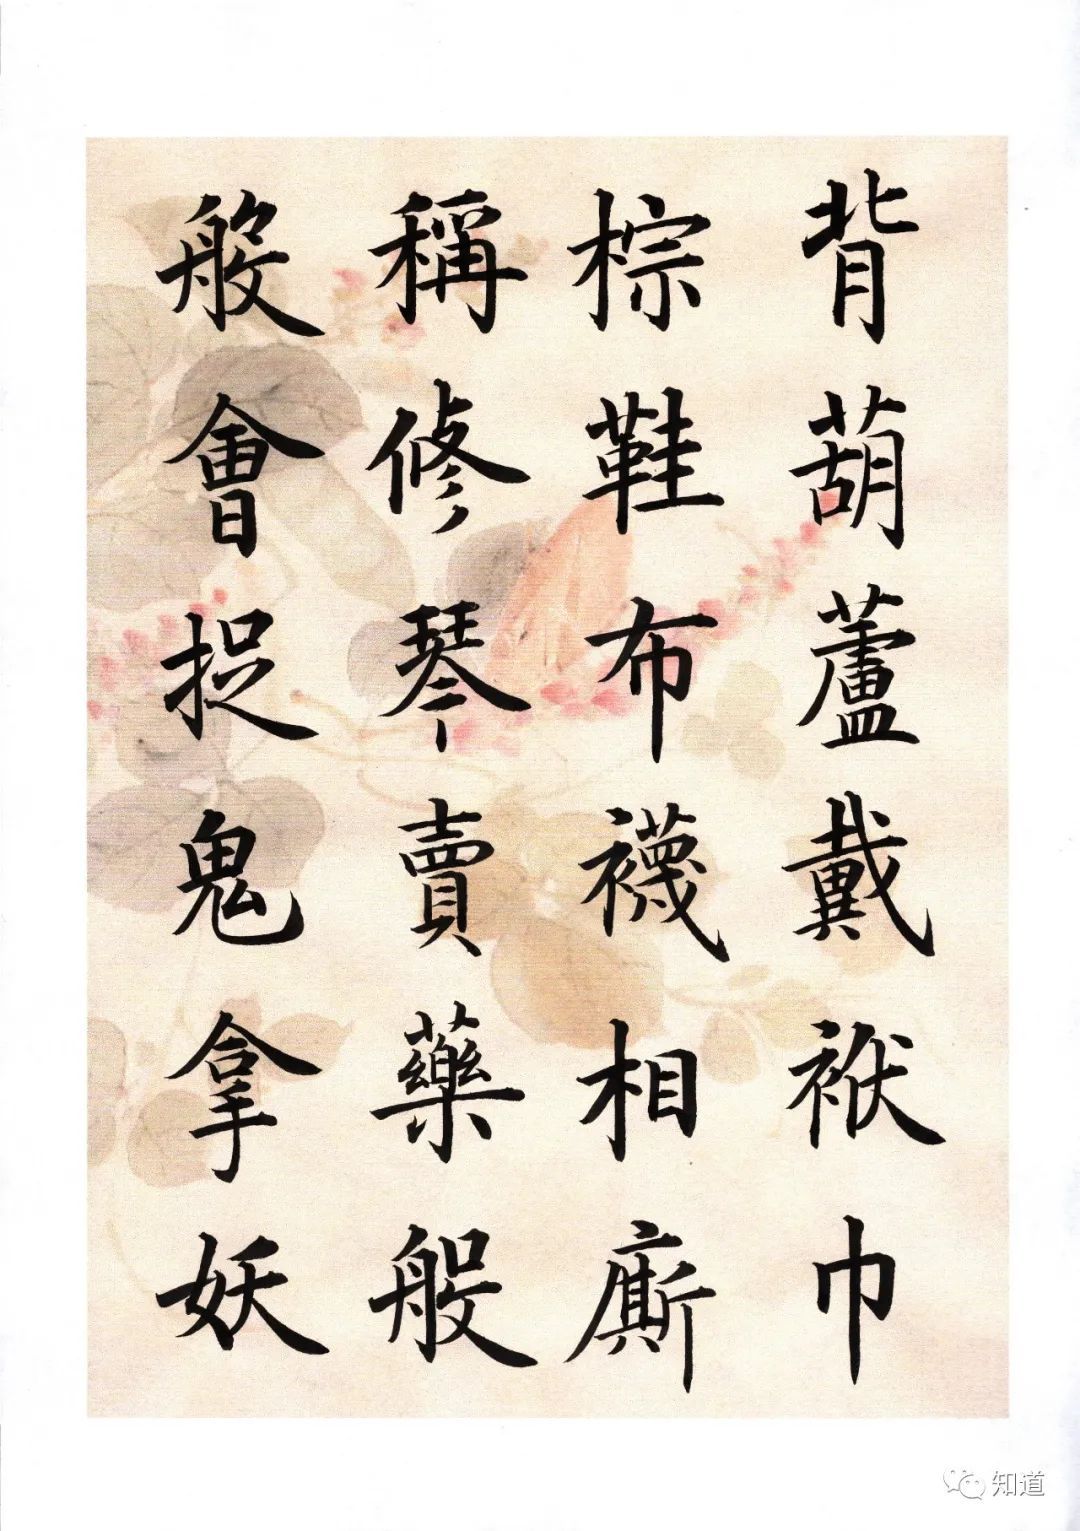 背葫蘆戴袱巾
棕鞋布襪相廝
稱修琴賣藥般
般會捉鬼拿妖
知道